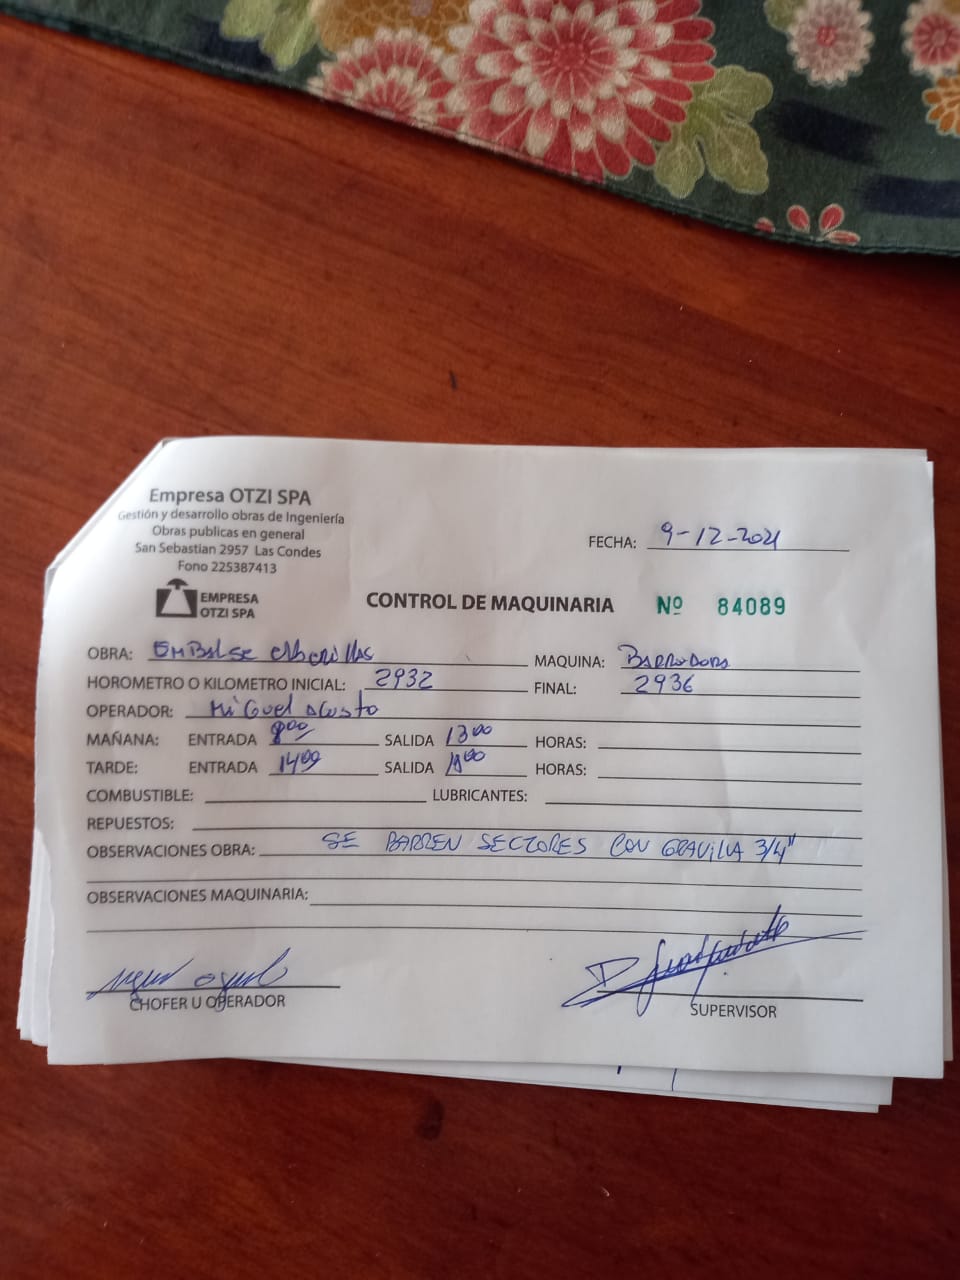 Empresa OTZI SPA
Gestión y desarrollo obras de Ingeniería
Obras publicas en general
San Sebastian 2957 Las Condes
Fono 225387413
EMPRESA
OTZI SPA
FECHA: 9-12-2021
CONTROL DE MAQUINARIA Nº 84089
OBRA: EMBALSE MAQUINA: BARREDORA
HOROMETRO O KILOMETRO INICIAL: 2932 FINAL: 2936
OPERADOR: Miguel
MAÑANA: ENTRADA 8:00 SALIDA 13:00 HORAS:
TARDE: ENTRADA 14:00 SALIDA 18:00 HORAS:
COMBUSTIBLE: LUBRICANTES:
REPUESTOS:
OBSERVACIONES OBRA: SE BARREN SECTORES CON GRAVILLA 3/4"
OBSERVACIONES MAQUINARIA:
CHOFER U OPERADOR
SUPERVISOR